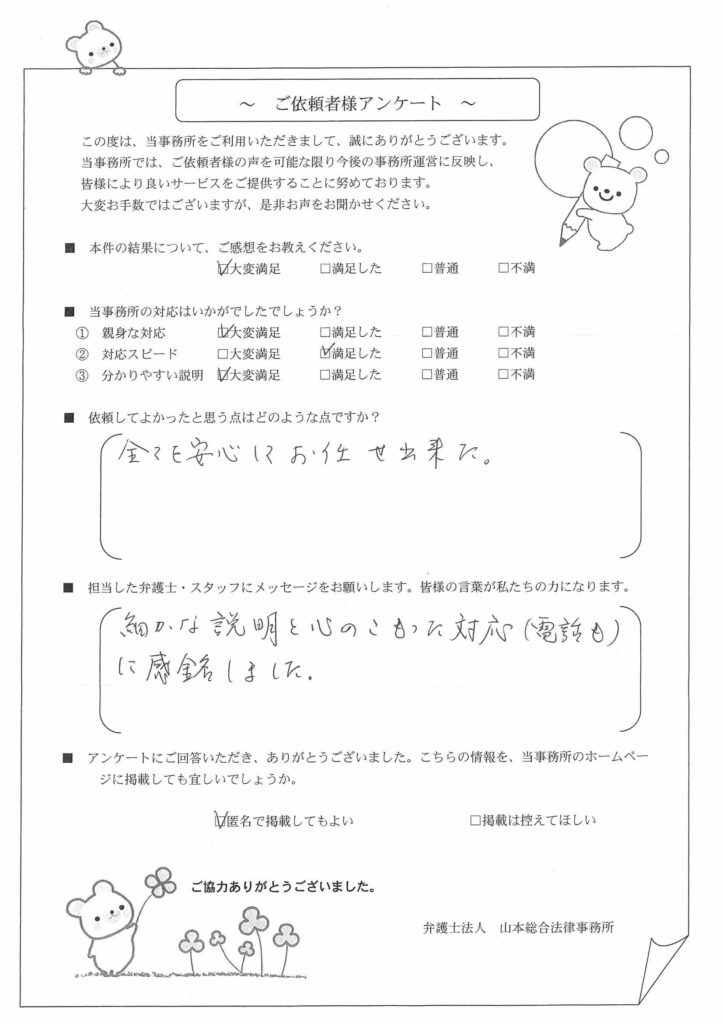 ～ ご依頼者様アンケート ～
この度は、当事務所をご利用いただきまして、誠にありがとうございます。
当事務所では、ご依頼者様の声を可能な限り今後の事務所運営に反映し、
皆様により良いサービスをご提供することに努めております。
大変お手数ではございますが、是非お声をお聞かせください。
■ 本件の結果について、ご感想をお教えください。
☑大変満足 □満足した □普通 □不満
■ 当事務所の対応はいかがでしたでしょうか？
① 親身な対応 ☑大変満足 □満足した □普通 □不満
② 対応スピード □大変満足 ☑満足した □普通 □不満
③ 分かりやすい説明 ☑大変満足 □満足した □普通 □不満
■ 依頼してよかったと思う点はどのような点ですか？
全てを安心してお任せ出来た。
■ 担当した弁護士・スタッフにメッセージをお願いします。皆様の言葉が私たちの力になります。
細かな説明と心のこもった対応(電話も)
に感銘しました。
■ アンケートにご回答いただき、ありがとうございました。こちらの情報を、当事務所のホームペー
ジに掲載しても宜しいでしょうか。
☑匿名で掲載してもよい □掲載は控えてほしい
ご協力ありがとうございました。
弁護士法人 山本総合法律事務所